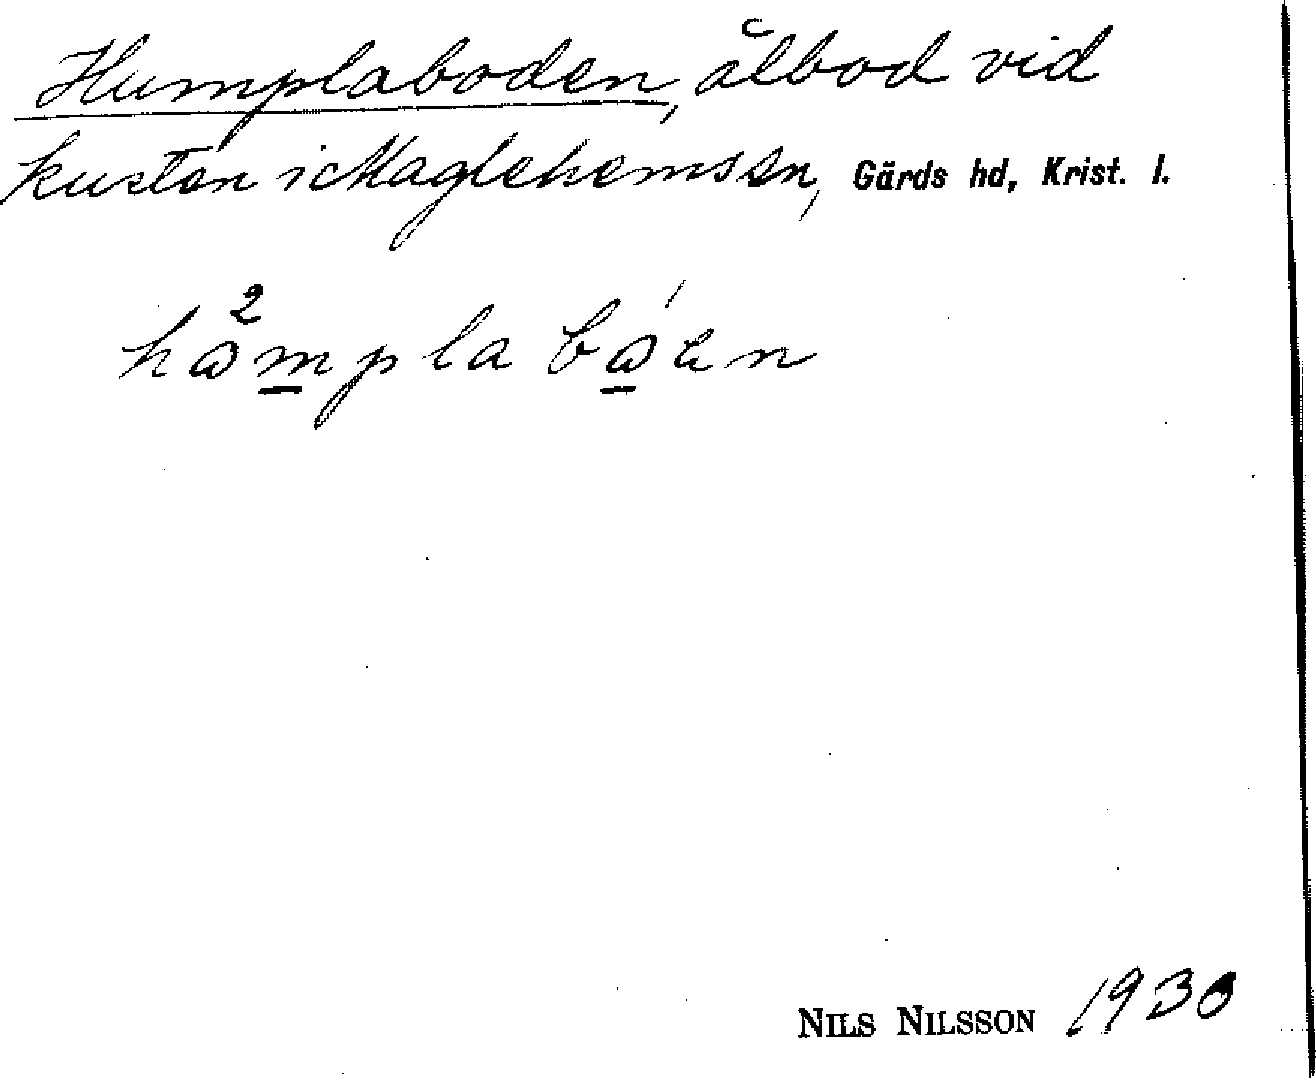 Humplaboden, ålbod vid
kusten i Maglehems sn, Gärds hd, Krist. l.
NILS NILSSON 1930